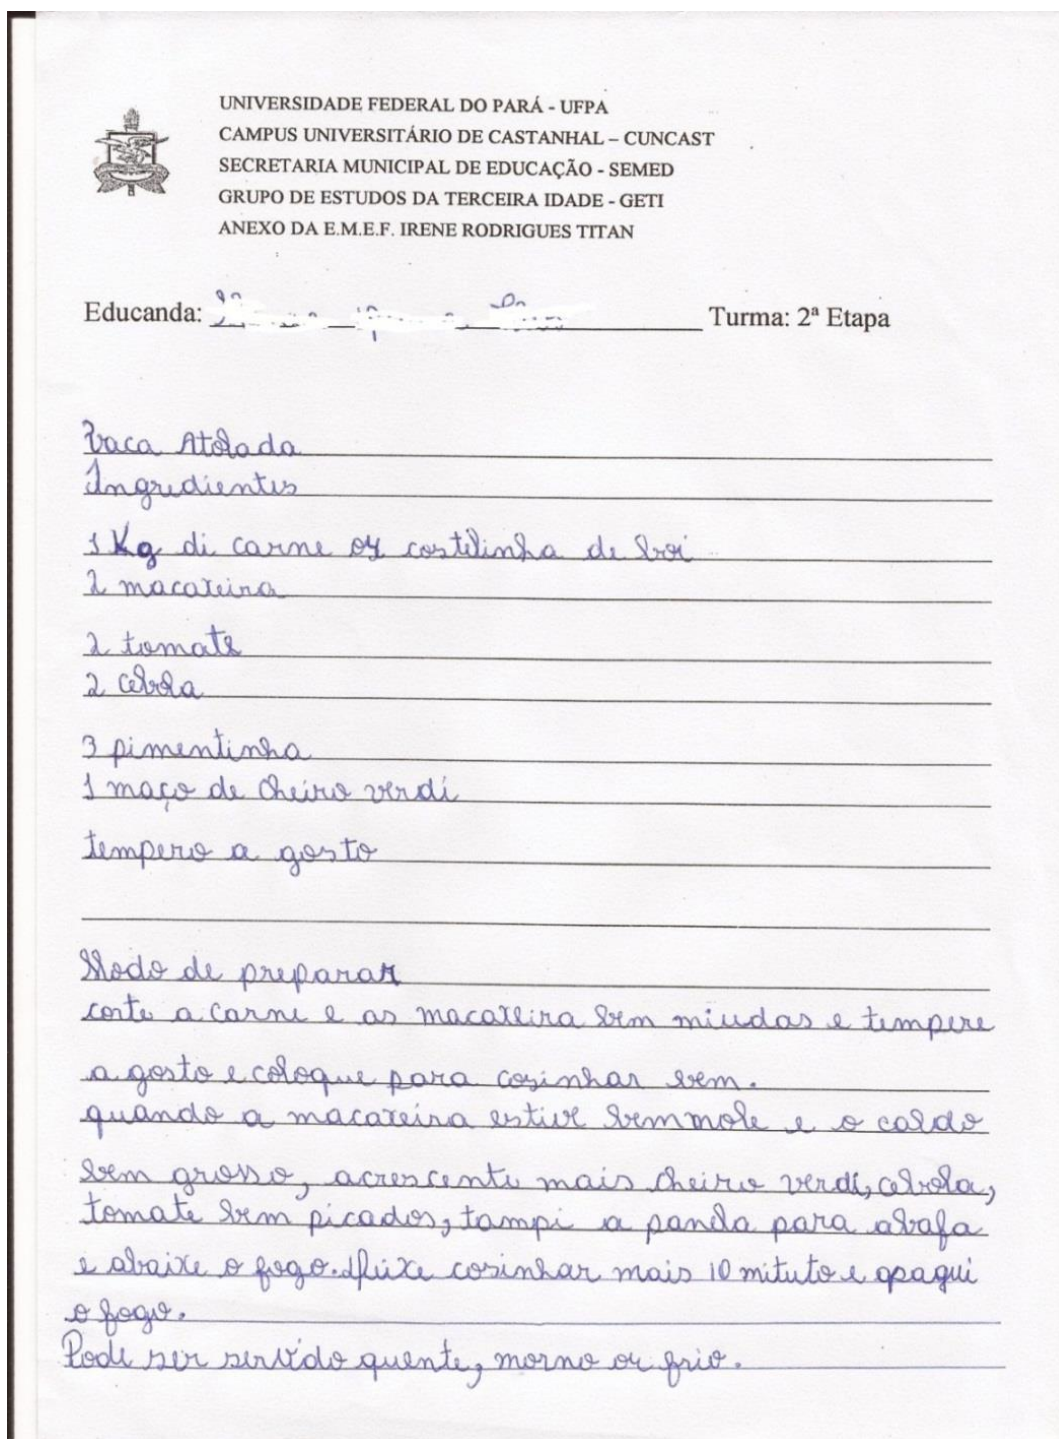 UNIVERSIDADE FEDERAL DO PARÁ - UFPA
CAMPUS UNIVERSITÁRIO DE CASTANHAL – CUNCAST
SECRETARIA MUNICIPAL DE EDUCAÇÃO - SEMED
GRUPO DE ESTUDOS DA TERCEIRA IDADE - GETI
ANEXO DA E.M.E.F. IRENE RODRIGUES TITAN
Educanda: Turma: 2ª Etapa
Vaca Atolada
Ingredientes
1 Kg di carne oy costilinha de boi
2 macaxeira
2 tomate
2 cebola
3 pimentinha
1 maço de cheiro verdi
tempero a gosto
Modo de preparar
corte a carni e as macaxeira bem miudas e tempere
a gosto e coloque para cosinhar bem.
quando a macaxeira estive bem mole e o caldo
bem grosso, acrescente mais cheiro verdi, cebola,
tomate bem picados, tampi a panela para abafa
e abaixe o fogo. deixe cosinhar mais 10 mituto e apagui
o fogo.
Pode ser servido quente, morno ou frio.